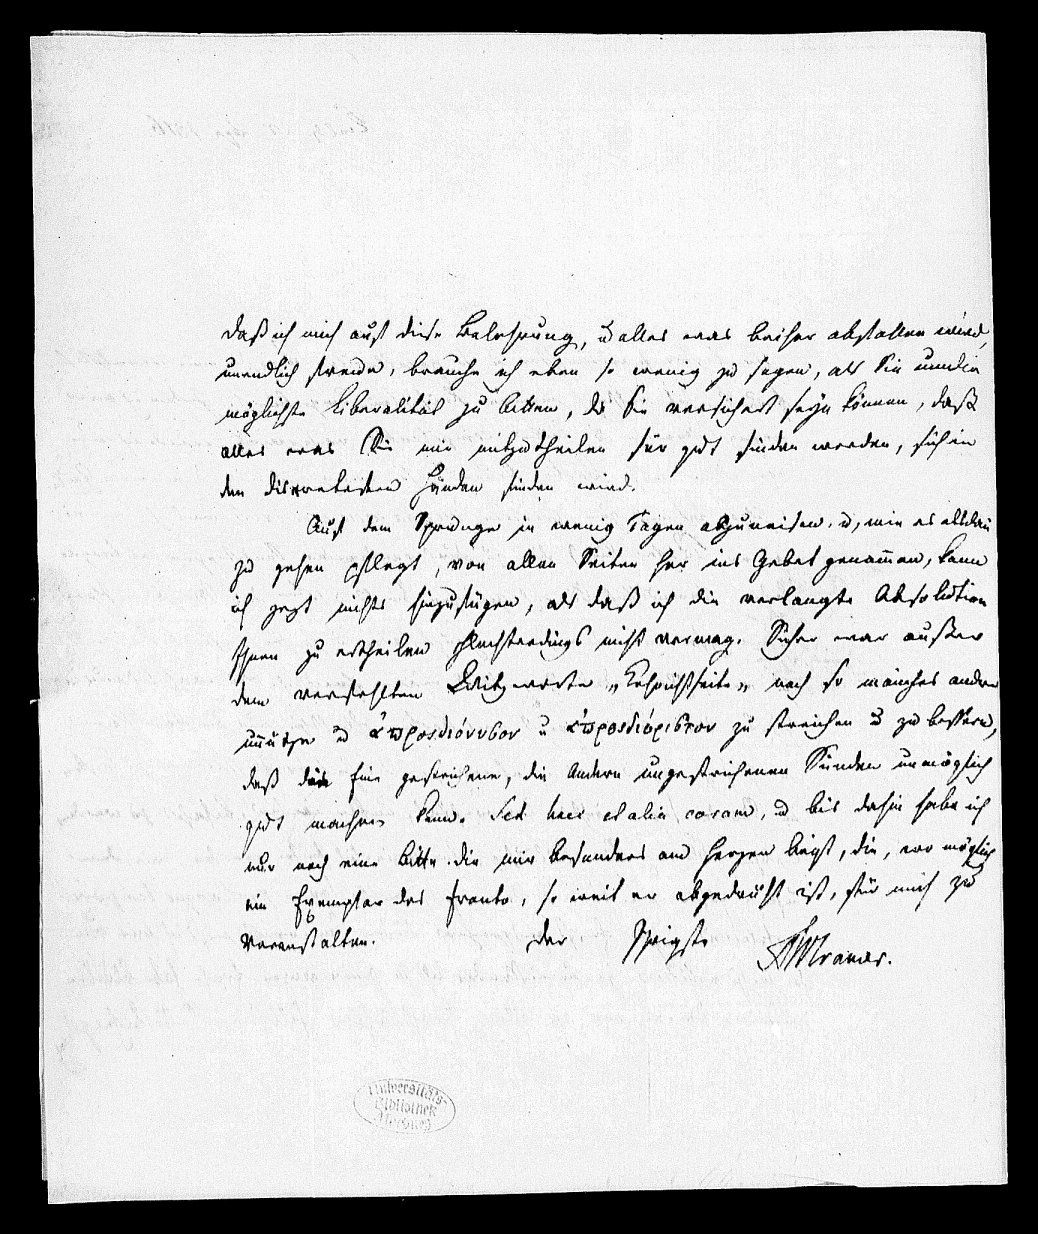 daß ich mich auf diese Belehrung, u alles was bisher abfallen wird,
unendlich freue, brauche ich eben so wenig zu sagen, als Sie um die
möglichste Liberalität zu bitten, da Sie versichert seyn können, daß
alles was Sie mir mitzutheilen für gut finden werden, sich in
den discretesten Händen finden wird.
Auf dem Sprunge in wenig Tagen abzureisen, u, wie es alsdann
zu gehen pflegt, von allen Seiten her ins Gebet genommen, kann
ich jezt nichts hinzufügen, als daß ich die verlangte Absolution
Ihnen zu ertheilen schlechterdings nicht vermag. Sicher war außer
dem verfehlten Witzworte „Kehrichtseite„ noch so manches andere
unnütze u ἀπροσδιόνυσον u ἀπροσδιόριστον zu streichen u zu bessern,
daß die Eine gestrichene, die Andern ungestrichenen Sünden unmöglich
gut machen kann. Sed haec et alia coram, u bis dahin habe ich
nur noch eine Bitte die mir besonders am Herzen liegt, die, wo möglich
ein Exemplar des Fronto, so weit er abgedruckt ist, für mich zu
veranstalten.
der Ihrigste
Cramer.
Universitäts-
Bibliothek